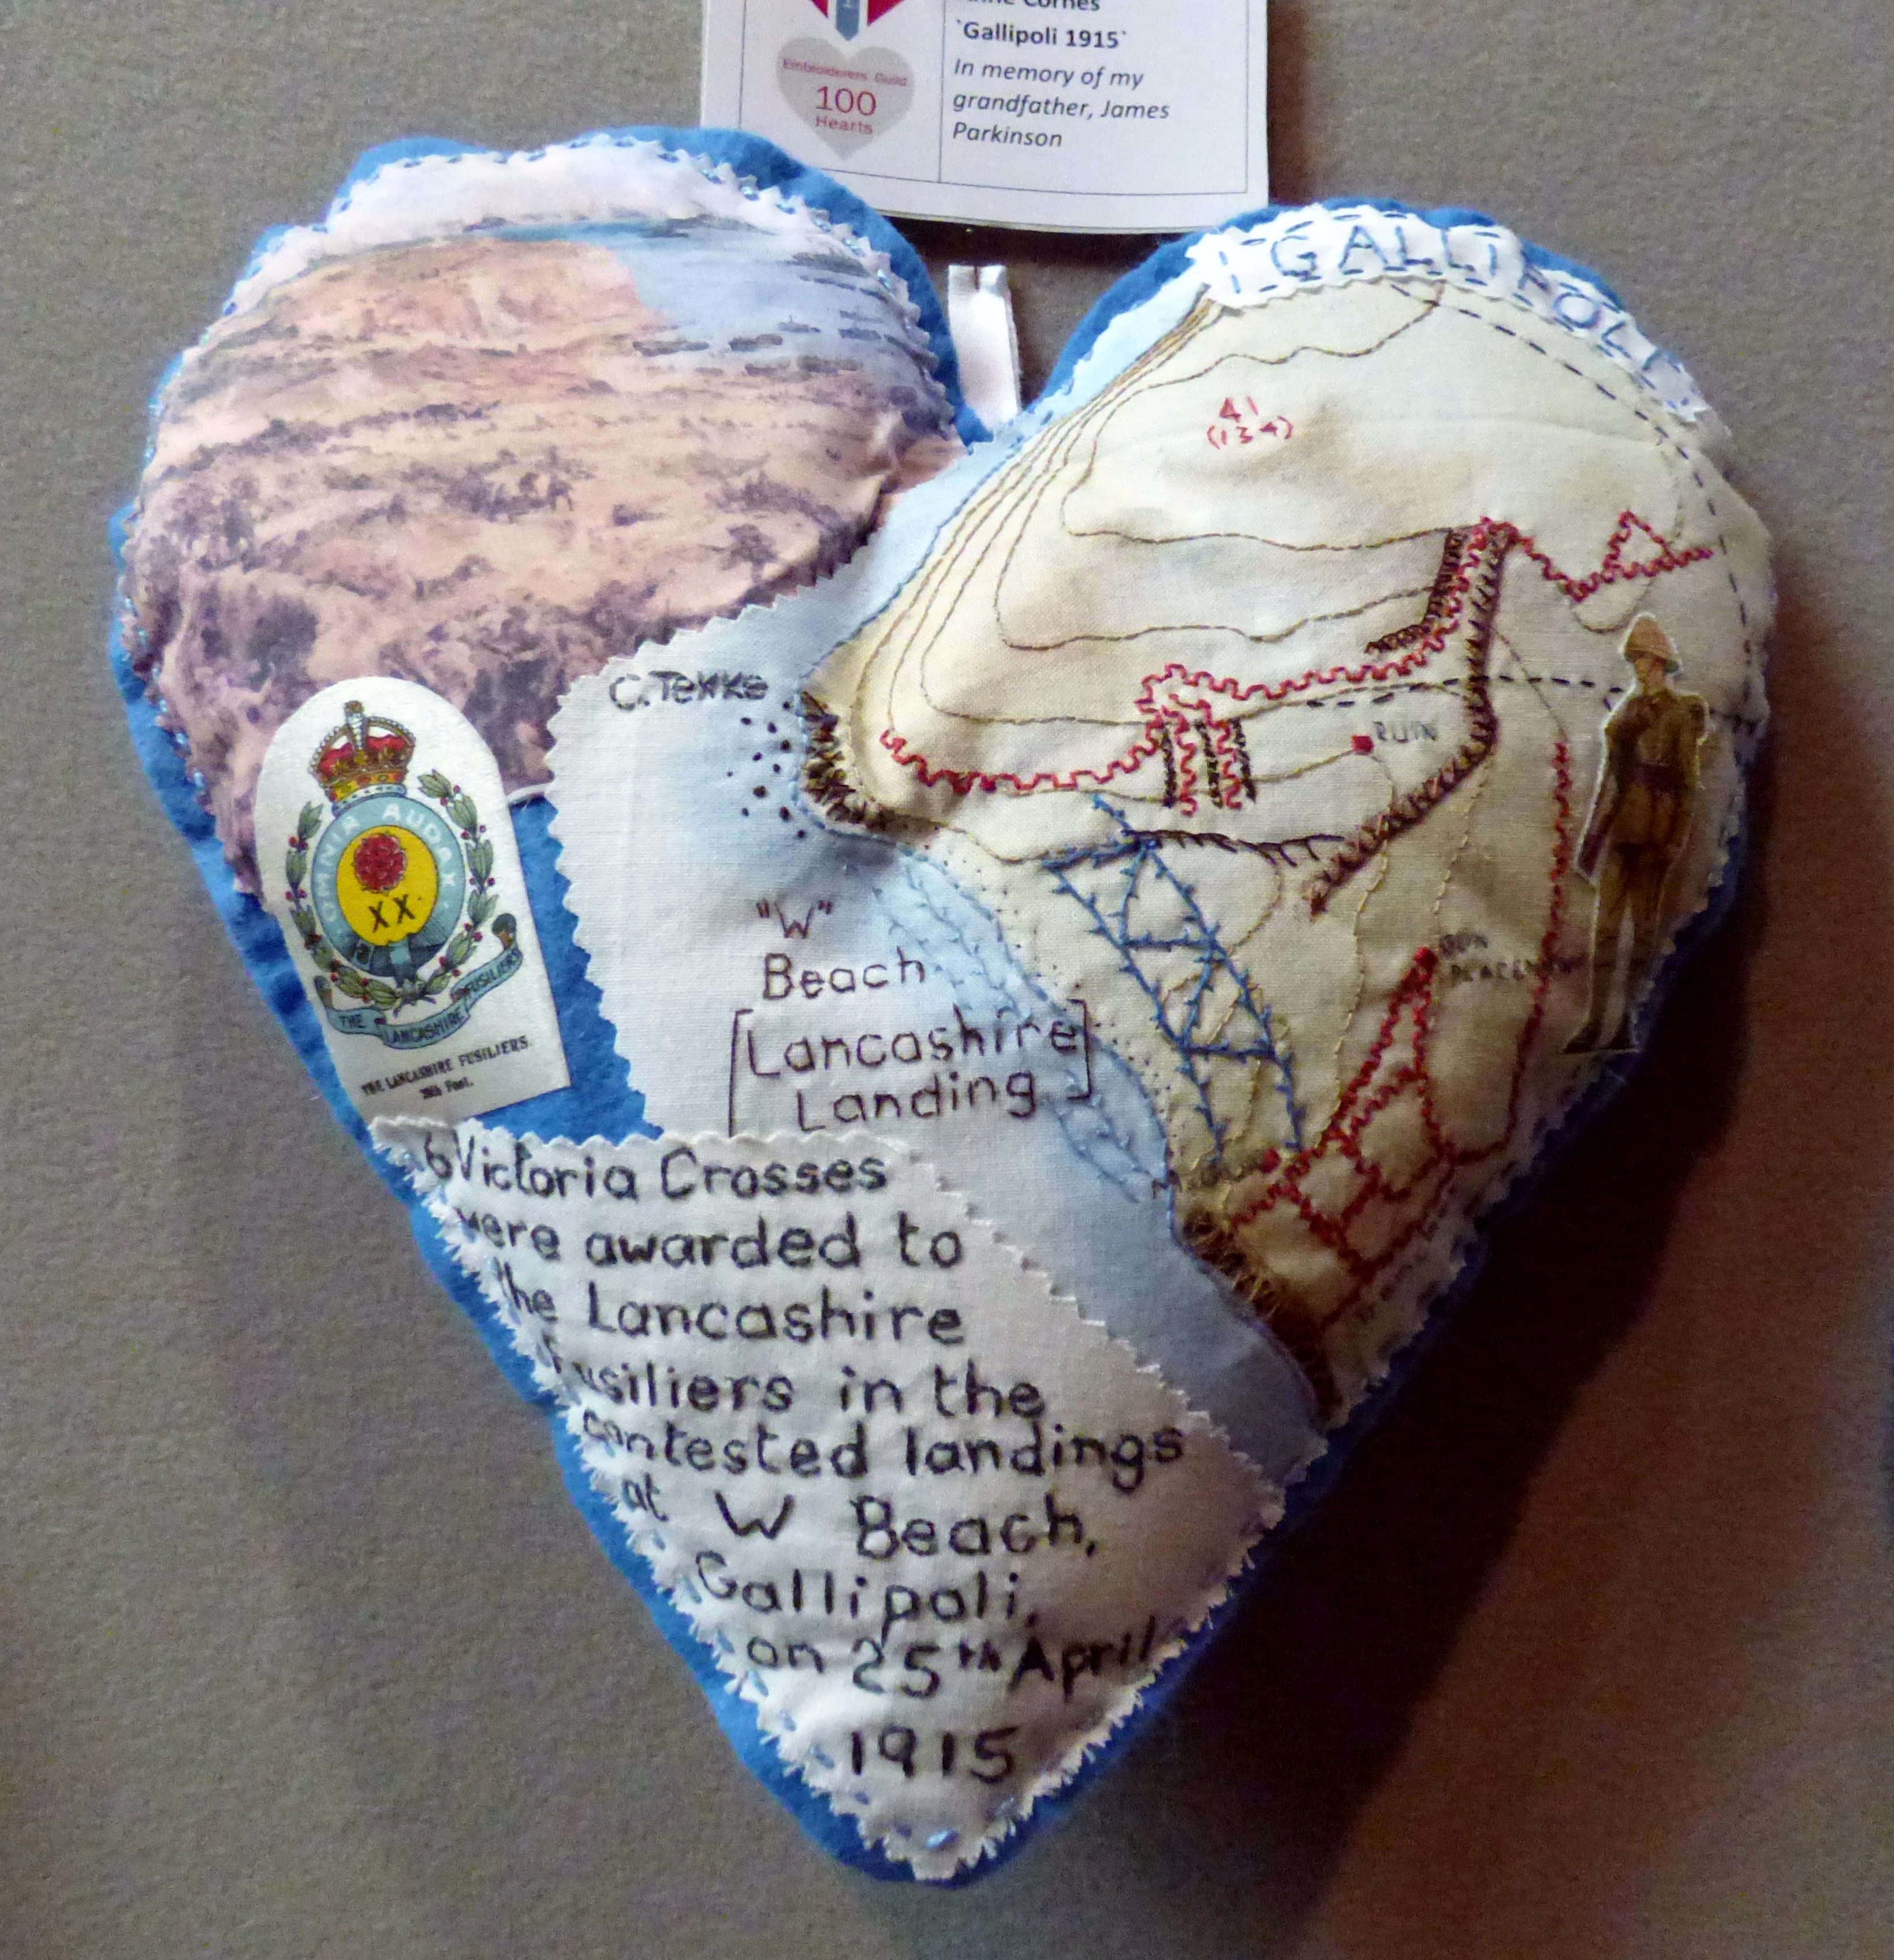 Cornes
`Gallipoli 1915`
In memory of my
grandfather, James
Parkinson
Embroiderers Guild
100
Hearts
GALLIPOLI
41
(134)
C. Tekke
RUIN
OMNIA AUDAX
XX.
THE LANCASHIRE FUSILIERS
THE LANCASHIRE FUSILIERS.
20th Foot.
"W"
Beach
[Lancashire
Landing]
6 Victoria Crosses
were awarded to
the Lancashire
Fusiliers in the
contested landings
at W Beach,
Gallipoli,
on 25th April
1915